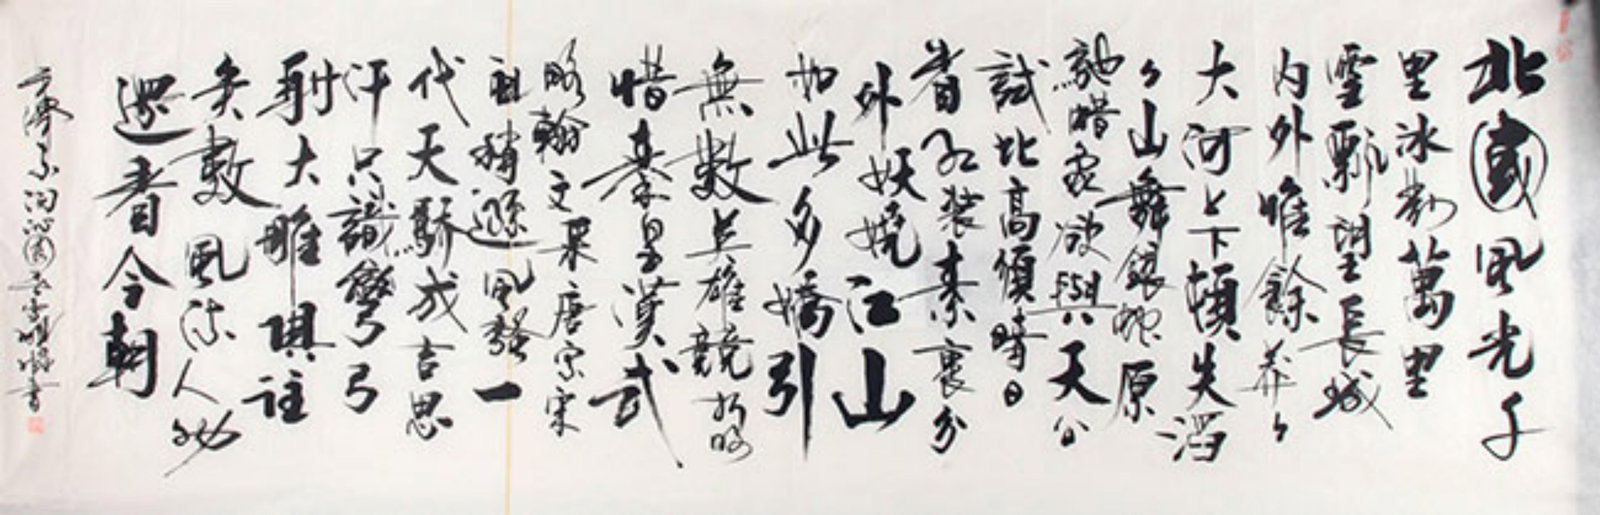 北國風光千
里冰封萬里
雪飄望長城
内外惟餘莽々
大河上下頓失滔
々山舞銀蛇原
馳蜡象欲與天公
試比高須晴日
看紅裝素裹分
外妖嬈江山
如此多嬌引
無數英雄競折腰
惜秦皇漢武
略輸文采唐宗宋
祖稍遜風騷一
代天驕成吉思
汗只識彎弓
射大雕俱往
矣數風流人物
還看今朝
沁園春雪 書